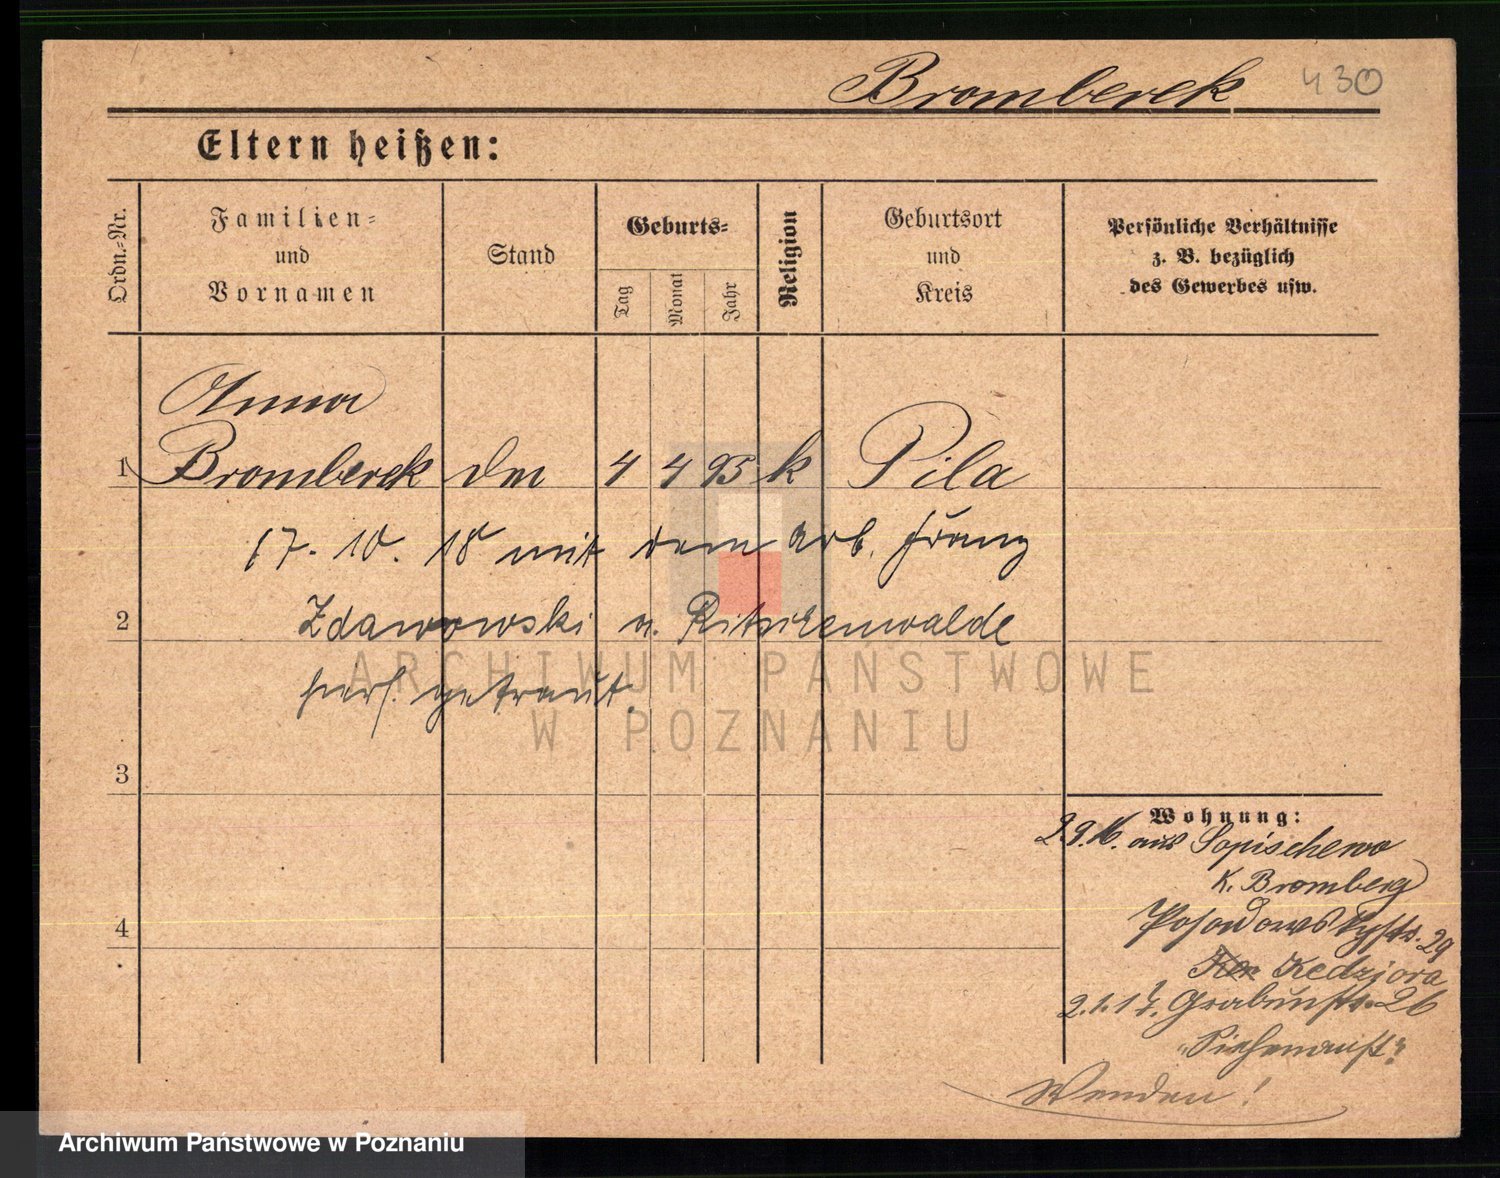 Bromberek 430
Eltern heißen:
Ordn.-Nr.
Familien-
und
Vornamen
Stand
Geburts-
Tag
Monat
Jahr
Religion
Geburtsort
und
Kreis
Persönliche Verhältnisse
z. B. bezüglich
des Gewerbes usw.
Anna
1 Bromberek 4 4 95 k Pila
17. 10. 18 mit dem Arb. Franz
2 Zdawowski a. Ritschenwalde
getraut.
3
4
Wohnung:
2.9.16. aus Sopischewo
K. Bromberg
Posadowskystr. 29
Kedziora
2.1.17. Grabenstr. 26
Wenden!
ARCHIWUM PAŃSTWOWE
W POZNANIU
Archiwum Państwowe w Poznaniu